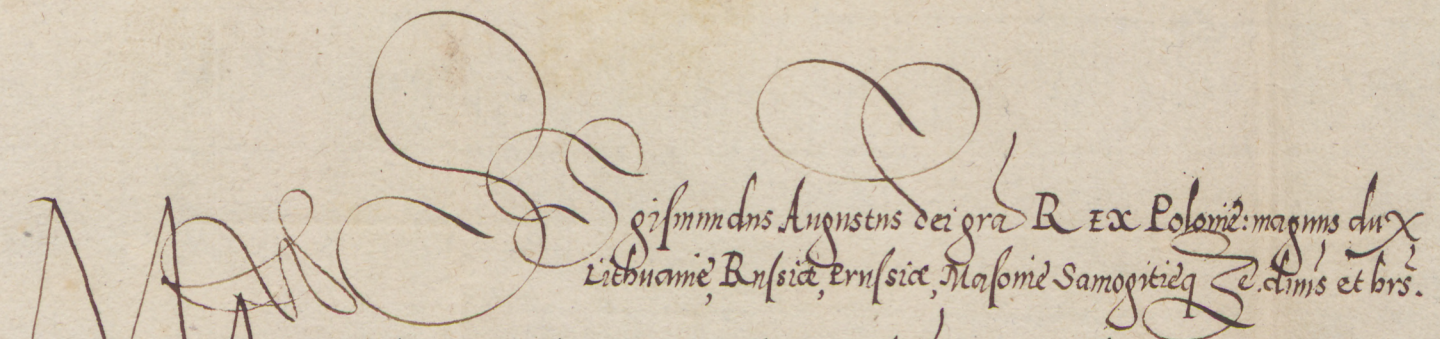 Sgismundus Augustus dei gra R EX Polonię: magnus dux
Lithuanię, Russiæ, Prussiæ, Masonię Samogitięq ꝛc. dnus et hrs.